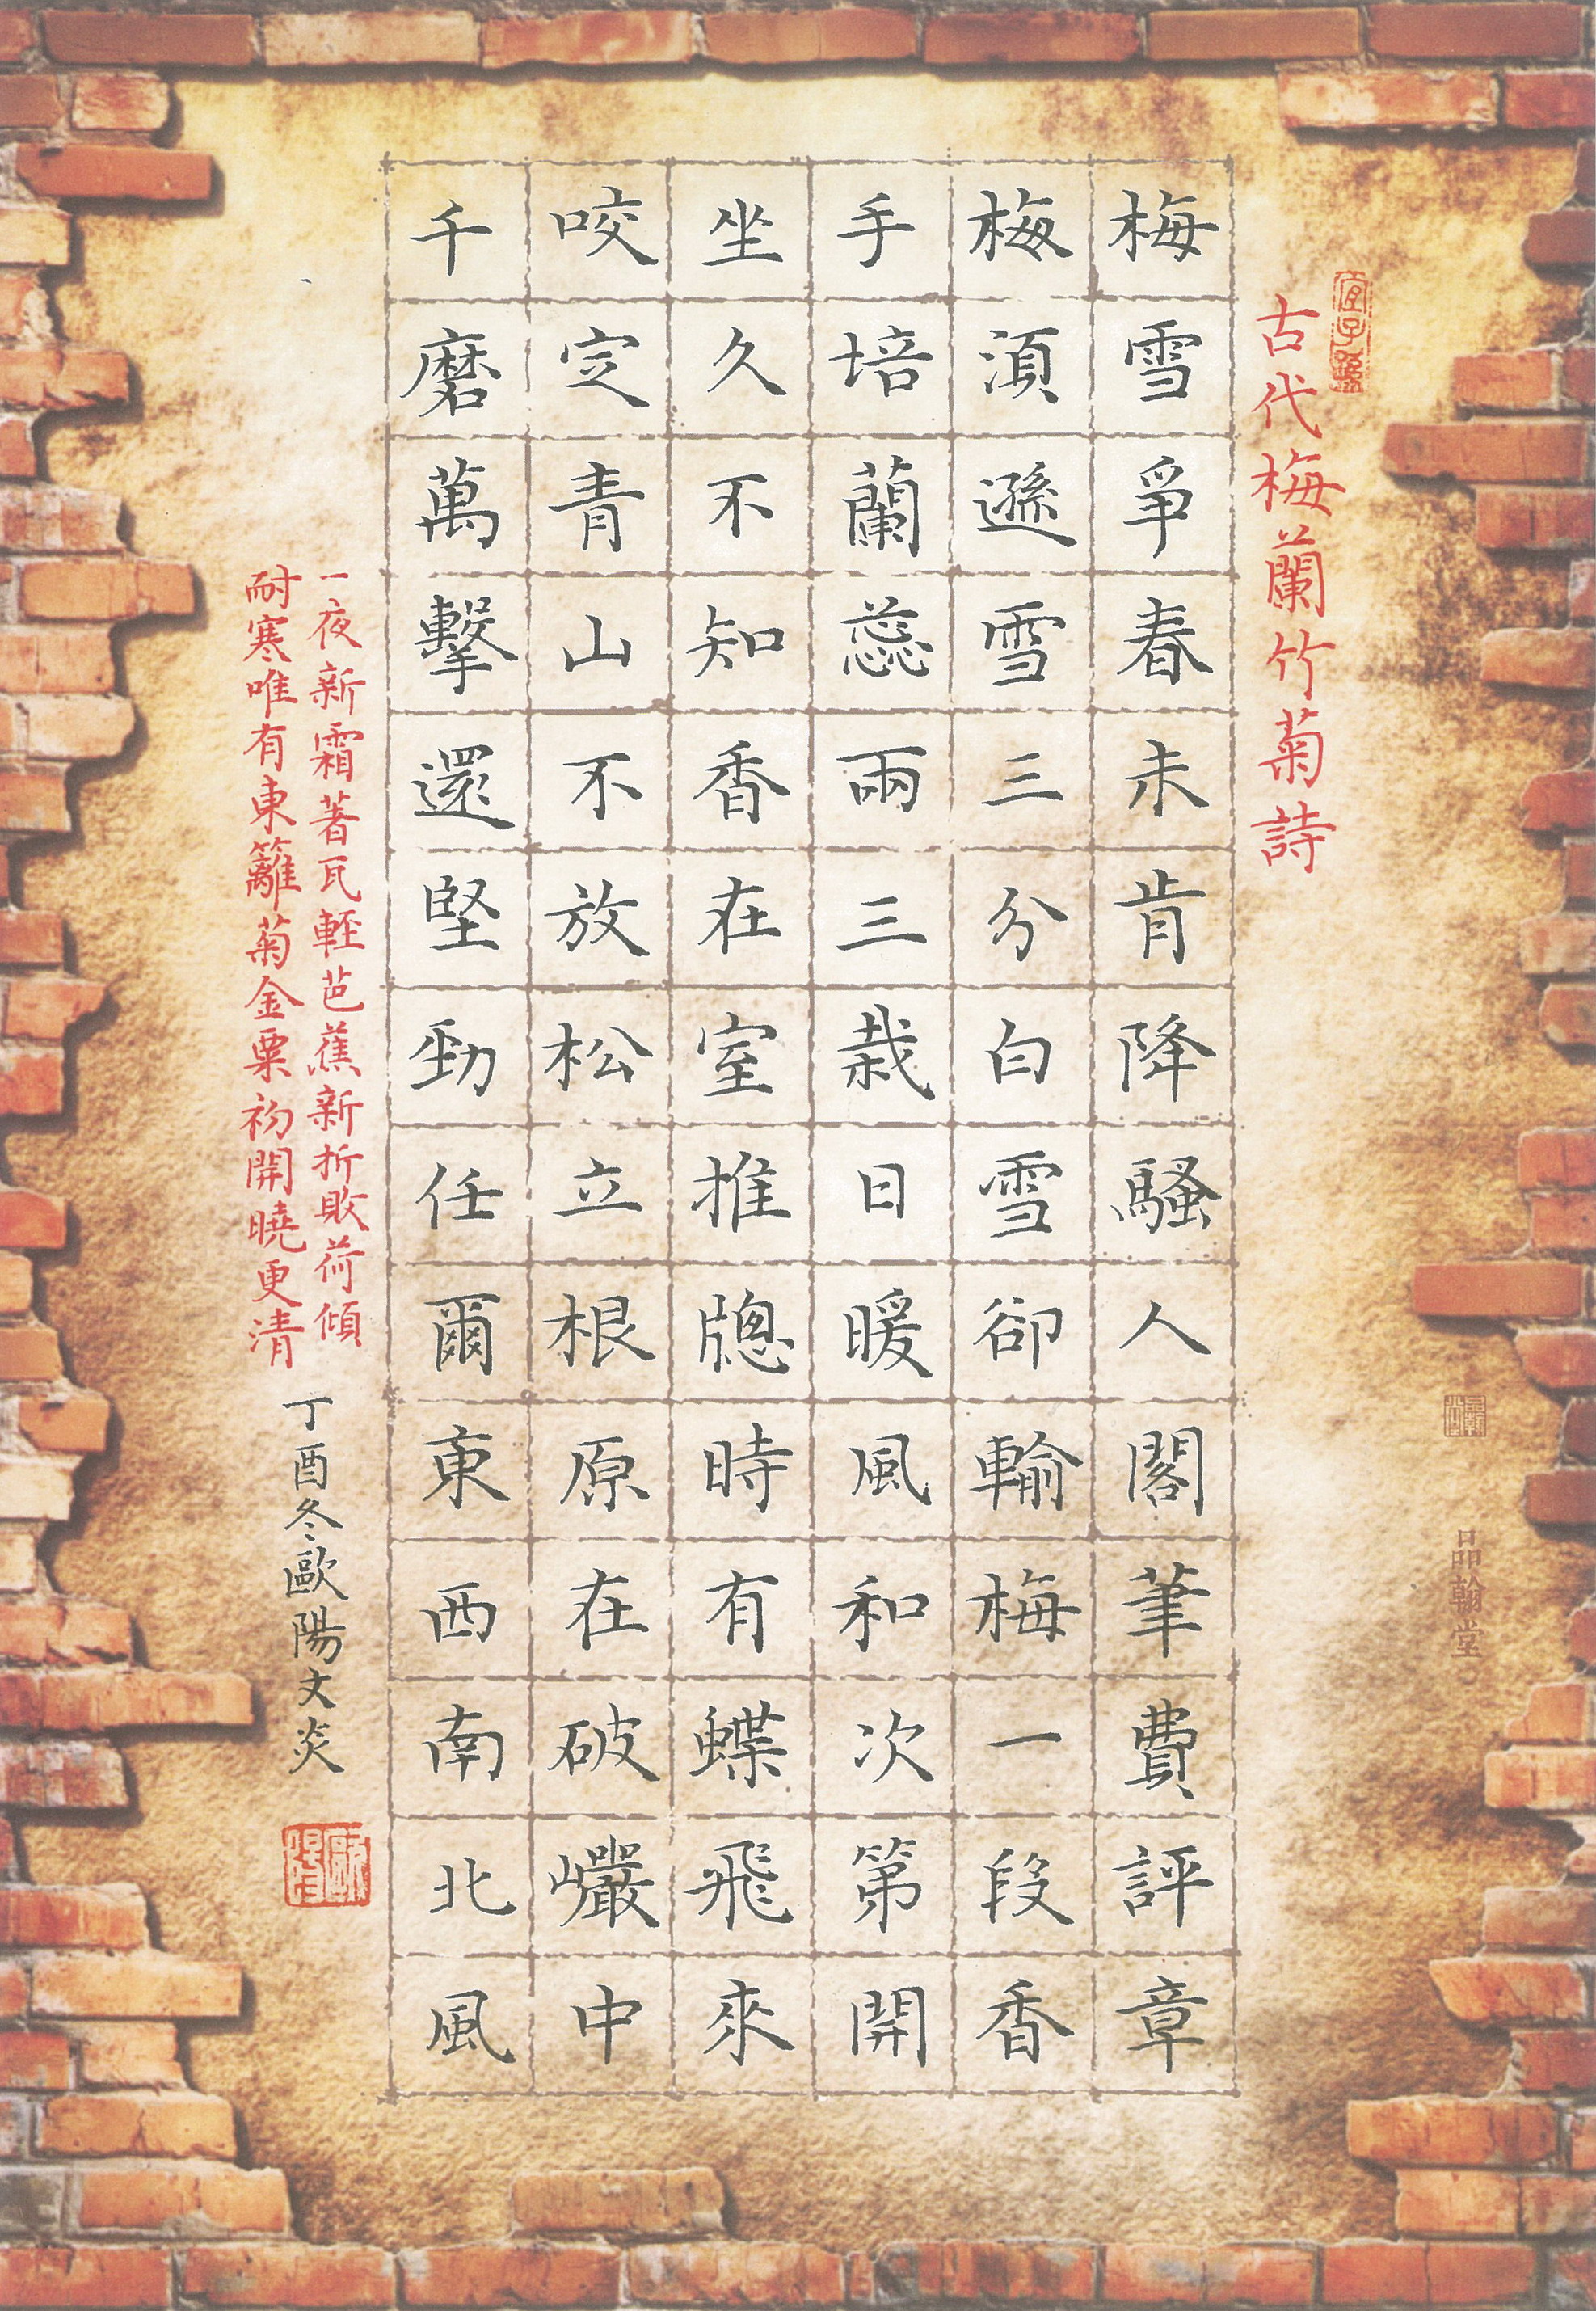 宜子孫
古代梅蘭竹菊詩
梅雪爭春未肯降騷人閣筆費評章
梅湏遜雪三分白雪卻輸梅一段香
手培蘭蕊兩三栽日暖風和次第開
坐久不知香在室推牕時有蝶飛來
咬定青山不放松立根原在破巖中
千磨萬擊還堅勁任爾東西南北風
一夜新霜著瓦輕芭蕉新折敗荷傾
耐寒唯有東籬菊金粟初開曉更清
丁酉冬歐陽文炎
歐陽
品翰堂